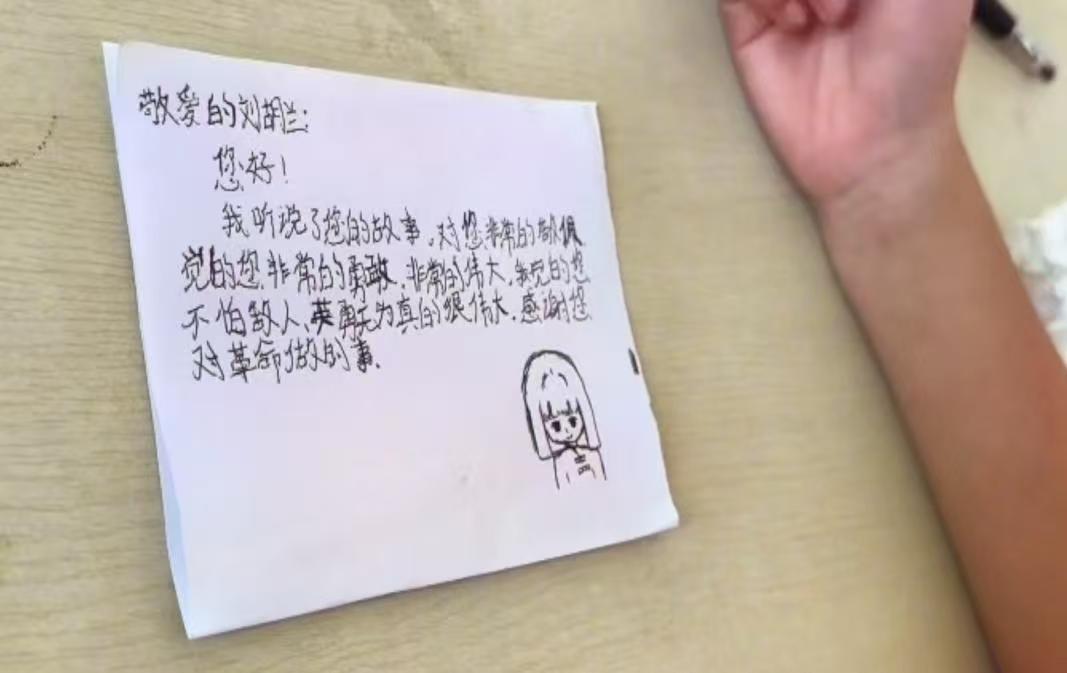 敬爱的刘胡兰:
您好!
我听说了您的故事,对您非常的敬佩
觉的您非常的勇敢,非常的伟大,我觉的您
不怕敌人、英勇无为真的很伟大,感谢您
对革命做的事.